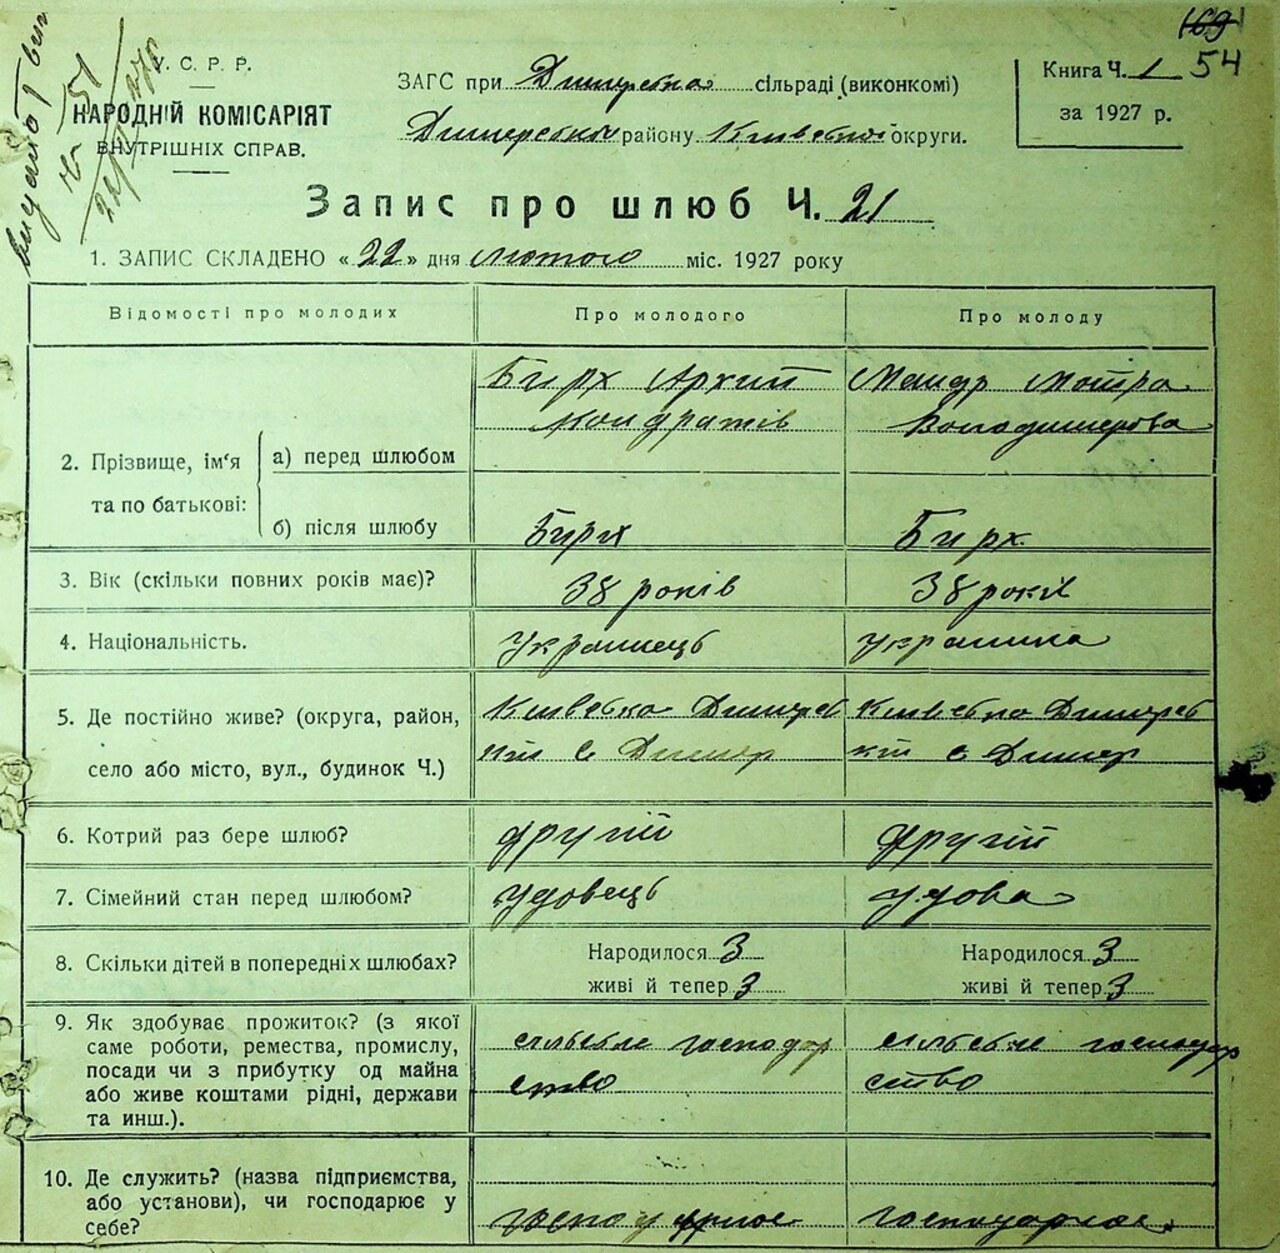 видано
169
54
У. С. Р. Р.
НАРОДНІЙ КОМІСАРІЯТ
ВНУТРІШНІХ СПРАВ.
ЗАГС при Димерська сільраді (виконкомі)
Димерський району Київської округи.
Книга Ч. 1
за 1927 р.
Запис про шлюб Ч. 21
1. ЗАПИС СКЛАДЕНО « 22 » дня лютого міс. 1927 року
Відомості про молодих Про молодого Про молоду
2. Прізвище, ім‘я та по батькові:
а) перед шлюбом
Бирх Архип
Кондратів
Мандр Мотра
Володимерова
б) після шлюбу
Бирх
Бирх
3. Вік (скільки повних років має)?
38 років
38 років
4. Національність.
Українець
Українка
5. Де постійно живе? (округа, район,
село або місто, вул., будинок Ч.)
Київська Димерсь
кий с Димер
Київська Димерсь
кий с Димер
6. Котрий раз бере шлюб?
другій
другій
7. Сімейний стан перед шлюбом?
удовець
удова
8. Скільки дітей в попередніх шлюбах?
Народилося 3
живі й тепер 3
Народилося 3
живі й тепер 3
9. Як здобуває прожиток? (з якої
саме роботи, ремества, промислу,
посади чи з прибутку од майна
або живе коштами рідні, держави
та инш.).
сільське господар
ство
сільське господар
ство
10. Де служить? (назва підприємства,
або установи), чи господарює у
себе?
господарює
господарює